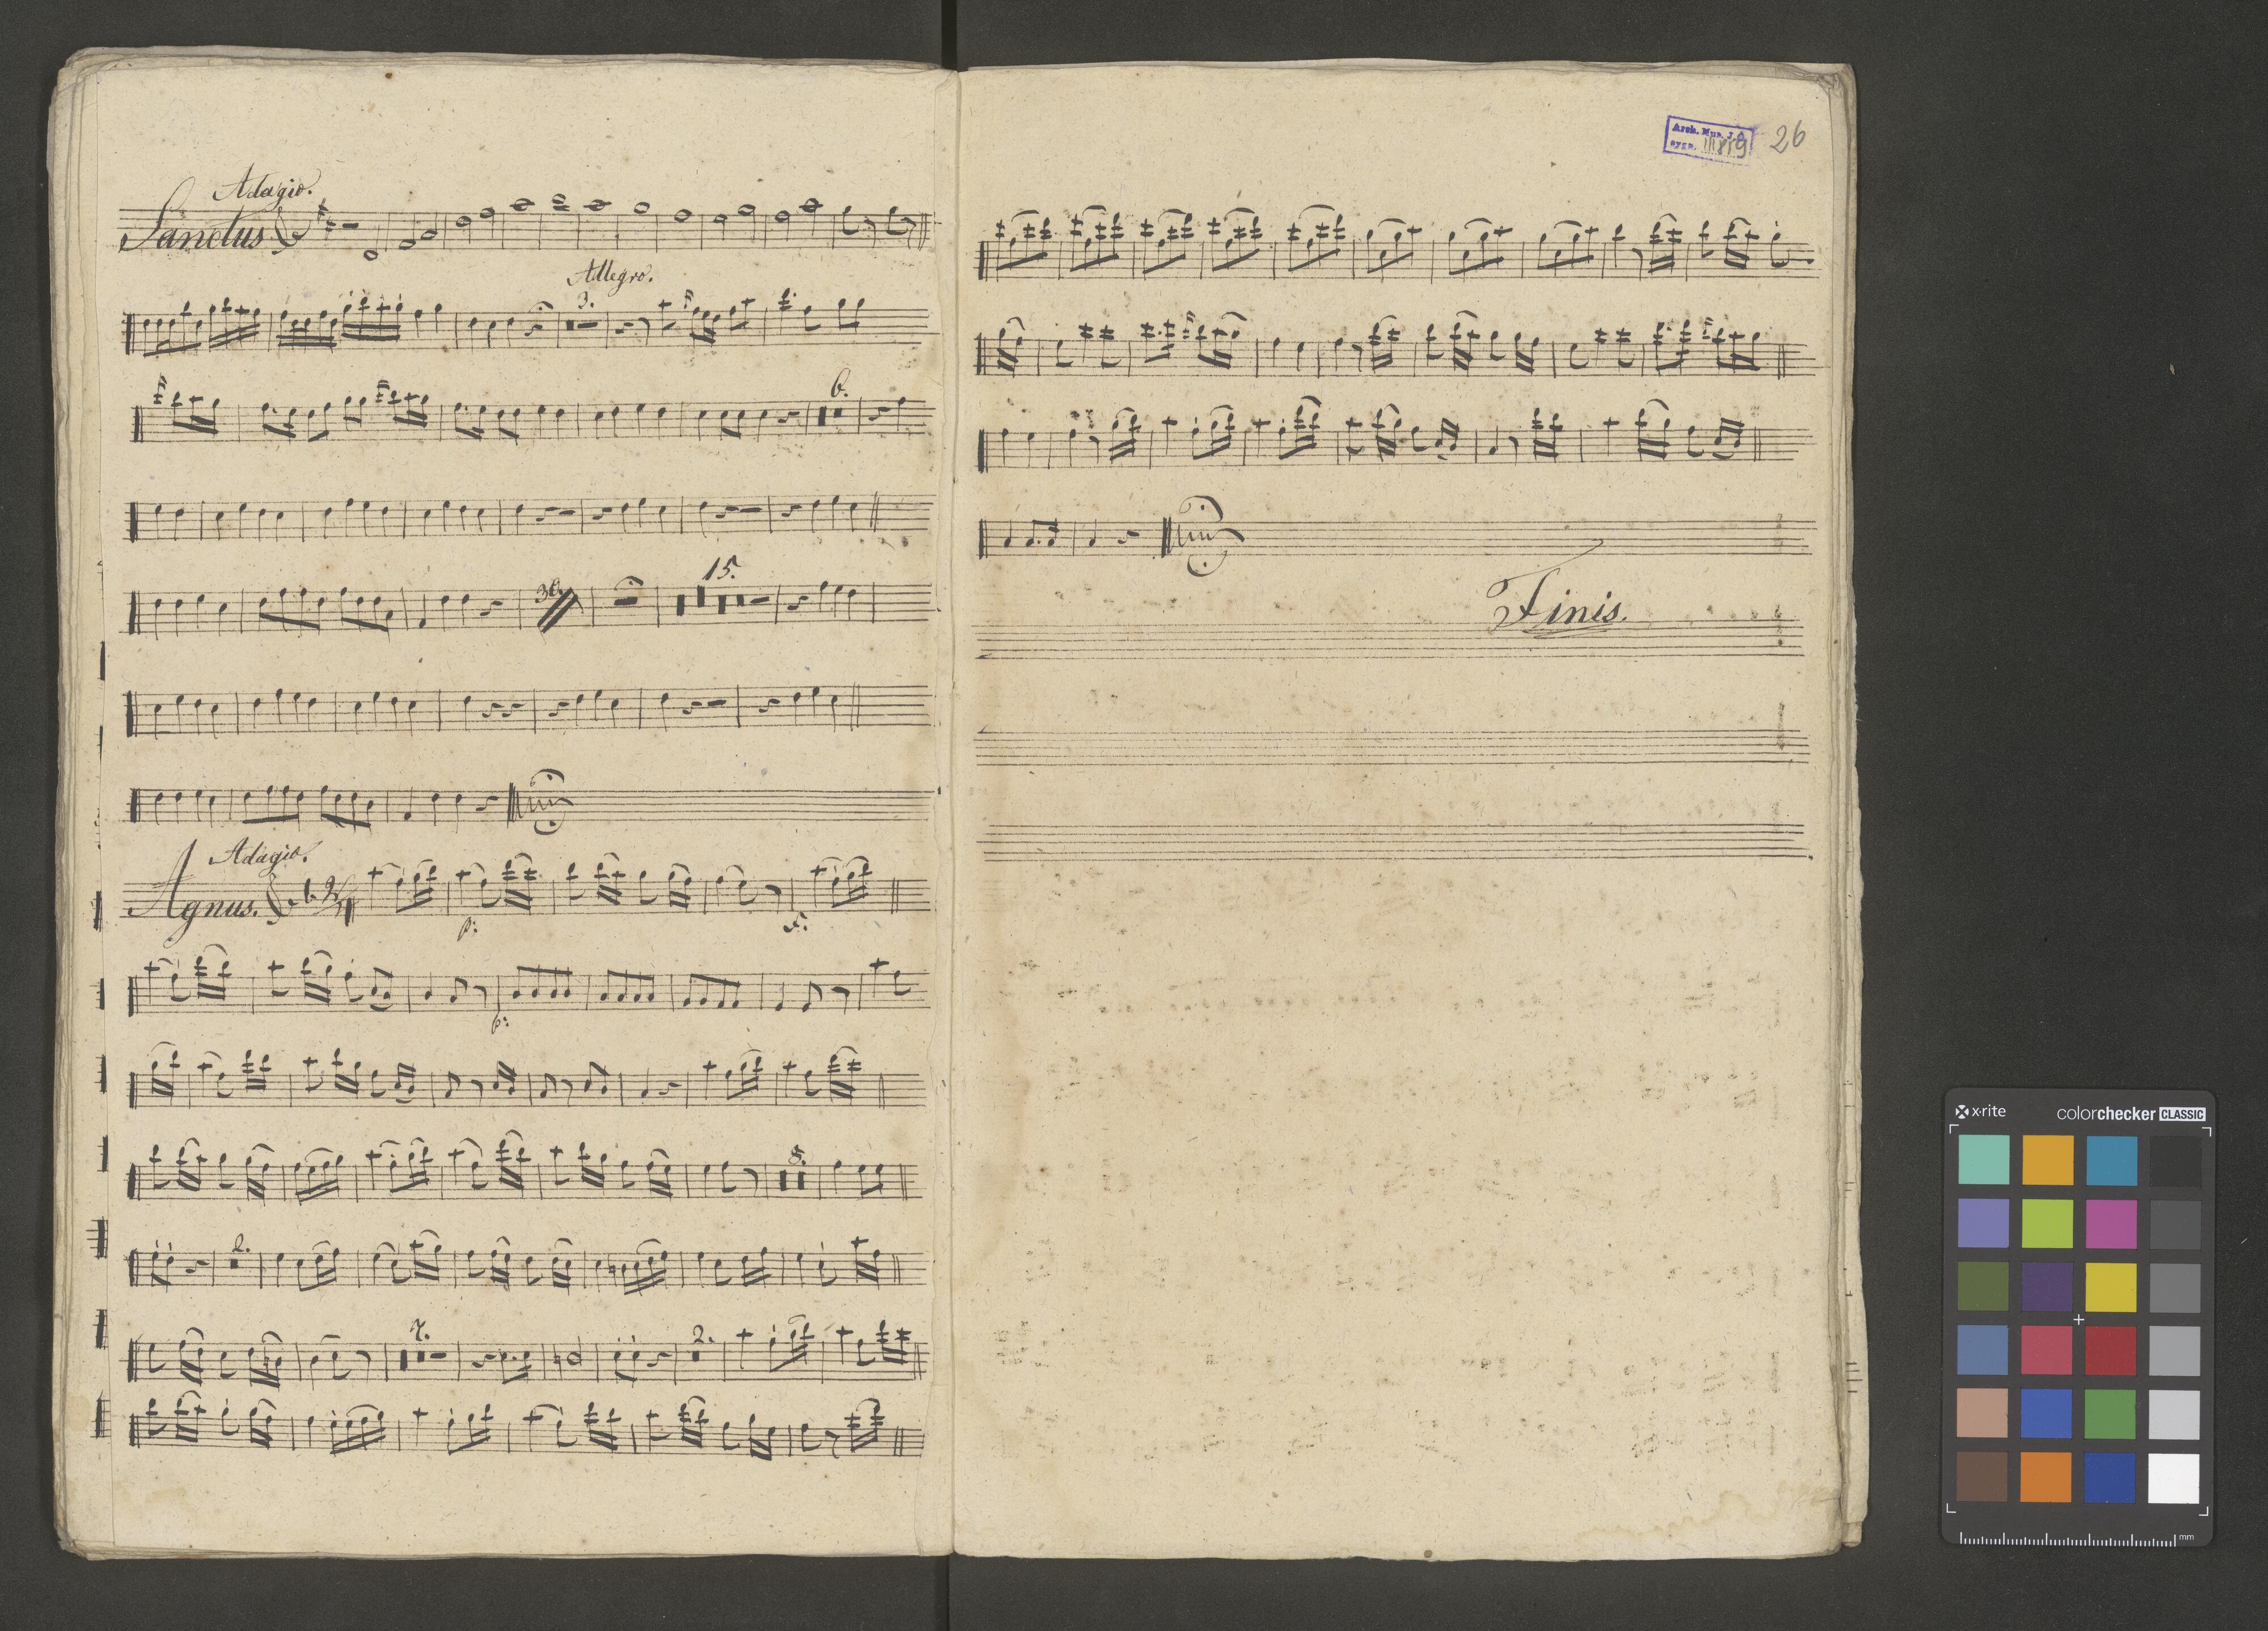 Adagio.
Sanctus
Allegro.
3.
6.
36.
15.
Adagio.
Agnus.
2/4
p:
f:
p:
8.
2.
7.
2.
Arch. Mus. J. G.
sygn. III 859
26
Finis.
x·rite
colorchecker CLASSIC
mm